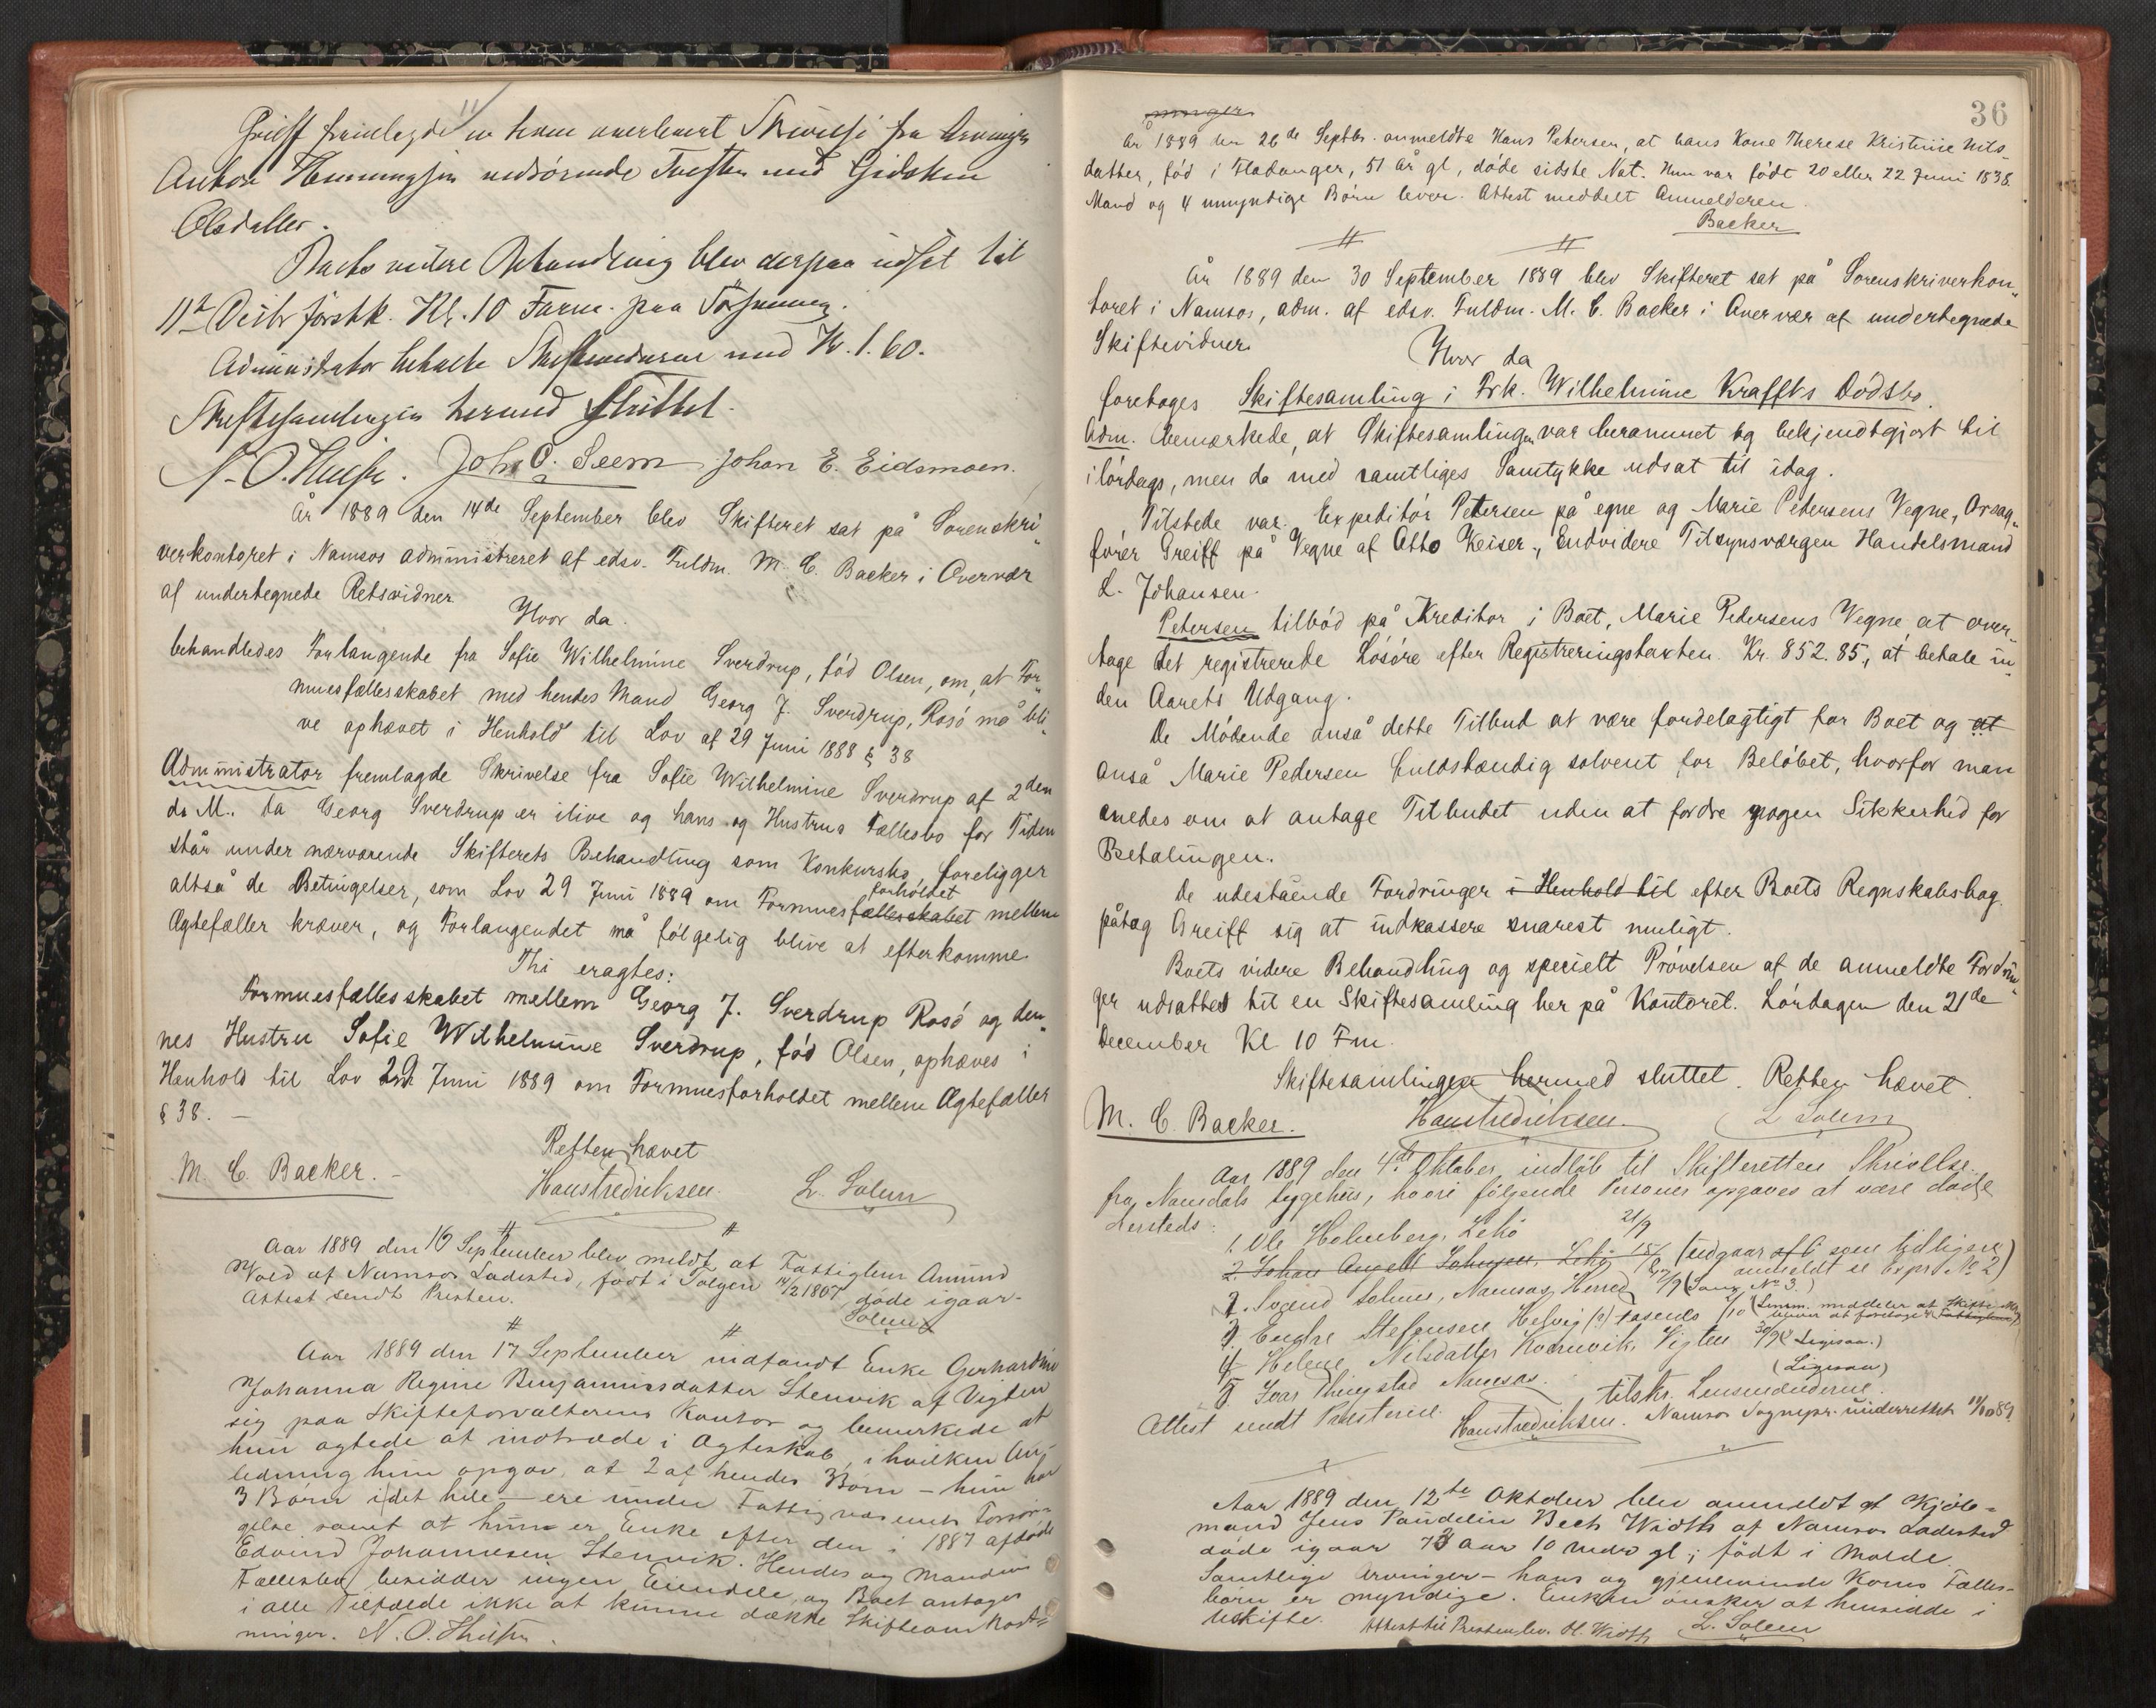 11/
Greiff fremlagde en ham overleveret Skrivelse fra Arvingen
Anton Henningsen vedrörende Tvisten med Gidsken
Olsdatter.
Boets videre Behandling blev derpaa udsat til
11te Octbr förstk. Kl. 10 Form. paa
Administrator betalte Skiftevidnerne med Kr. 1.60.
Skiftesamlingen hermed sluttet.
Joh. O. Seem Johan E. Eidsmoen.
År 1889 den 14de September blev Skifteret sat på Sorenskri„
verkontoret i Namsos administreret af edsv. Fuldm. M. C. Backer i Overvær
af undertegnede Retsvidner
Hvor da.
behandledes Forlangende fra Sofie Wilhelmine Sverdrup, fød Olsen, om, at For„
muesfællesskabet med hendes Mand Georg J. Sverdrup, Rosö må bli„
ve ophævet i Henhold til Lov af 29 Juni 1888 § 38
Administrator fremlagde Skrivelse fra Sofie Wilhelmine Sverdrup af 2den
ds M. Da Georg Sverdrup er ilive og hans og Hustrus Fællesbo for Tiden
står under nærværende Skifterets Behandling som Konkursbo, foreligger
altså de Betingelser, som Lov 29 Juni 1889 om Formuesfællesskabet forholdet mellem
Ægtefæller kræver, og Forlangendet må fölgelig blive at efterkomme.
Thi eragtes:
Formuesfællesskabet mellem Georg J. Sverdrup Rosö og den„
nes Hustru Sofie Wilhelmine Sverdrup, fød Olsen, ophæves i
Henhold til Lov 29 Juni 1889 om Formuesforholdet mellem Ægtefæller
§ 38. —
Retten hævet
M. C. Backer. — Hans Fredriksen. L. Solem
Aar 1889 den 16 September blev meldt at Fattiglem Amund
Wold af Namsos Ladested, födt i Tolgen 14/2 1807, døde igaar.
Attest sendt Presten. Solem
Aar 1889 den 17 September indfandt Enke Gerhardine
Johanna Regine Benjaminsdatter Stenvik af Vigten
sig paa Skifteforvalterens Kontor og bemerkede at
hun agtede at indtræde i Ægteskab, i hvilken An„
ledning hun opgav, at 2 af hendes Börn — hun har
3 Börn i det hele — ere under Fattigvæsenets Forsör„
gelse samt at hun er Enke efter den i 1887 afdöde
Edvind Johannesen Stenvik. Hendes og Mandens
Fællesbo besidder ingen Eiendele, og Boet antages
i alle Tilfælde ikke at kunne dække Skifteomkost=
ninger.
36
ninger
År 1889 den 26de Septbr. anmeldte Hans Petersen, at hans Kone Therese Kristine Nils-
datter, fød i Fladanger, 51 år gl, døde sidste Nat. Hun var født 20 eller 22 Juni 1838.
Mand og 4 umyndige Börn lever. Attest meddelt Anmelderen.
Backer
År 1889 den 30 September 1889 blev Skifteret sat på Sorenskriverkon„
toret i Namsos, adm. af edsv. Fuldm. M. C. Backer i Overvær af undertegnede
Skiftevidner.
Hvor da
foretoges Skiftesamling i Frk. Wilhelmine Kraffts Dødsbo.
Adm. bemærkede, at Skiftesamlingen var berammet og bekjendtgjort til
ilördags, men da med samtliges Samtykke udsat til idag.
Tilstede var Expeditör Petersen på egne og Marie Pedersens Vegne, Orsag„
förer Greiff på Vegne af Otto Keiser, Endvidere Tilsynsværgen Handelsmand
L. Johansen.
Petersen tilböd på Kreditor i Boet, Marie Pedersens Vegne at over„
tage det registrerede Lösöre efter Registreringstaxten Kr. 852.85, at betale in„
den Aarets Udgang.
De Mödende anså dette Tilbud at være fordelagtigt for Boet og at
anså Marie Pedersen fuldstændig solvent for Belöbet, hvorfor man
enedes om at antage Tilbudet uden at fordre nogen Sikkerhed for
Betalingen.
De udestående Fordringer i Henhold til efter Boets Regnskabsbog
påtog Greiff sig at indkassere snarest muligt.
Boets videre Behandling og specielt Prövelsen af de anmeldte Fordrin„
ger udsattes til en Skiftesamling her på Kontoret. Lördagen den 21de
December Kl 10 Fm.
Skiftesamlingen hermed sluttet. Retten hævet.
M. C. Backer. Hans Fredriksen. L Solem
Aar 1889 den 4de Oktober indløb til Skifteretten Skrivelse
fra Namdals Sygehus, hvori følgende Personer opgaves at være døde
dersteds:
1. Ole Holmberg, Lekö 21/9
2. Johan Angell Johnsen, Lekö 15/ (udgaar som tidligere
anmeldt se Expr No 2)
2. Svend Solem, Namsos Herred 2/9 (
3 Endre Stefensen Helvig (?) Fosnes /10 (Lensm. meddeler at
4 Helene Nilsdatter Kvernvik, Vigten 30/9 (Ligesaa.)
5 Ivar Thingstad Namsos. (Ligesaa)
tilskr. Lensmændene.
Attest sendt Presterne. Hans Fredriksen. Namsos Sognepr. underrettet
Aar 1889 den 12te Oktober blev anmeldt at Kjöb=
mand Jens Paudelin Bech Width af Namsos Ladested
døde igaar 73 aar 10 mdr gl; födt i Molde.
Samtlige Arvinger — hans og gjenlevende Kones Fælles-
börn er myndige. Enken ønsker at hensidde i
Uskifte. Attest til Presten lev. H. Width L. Solem